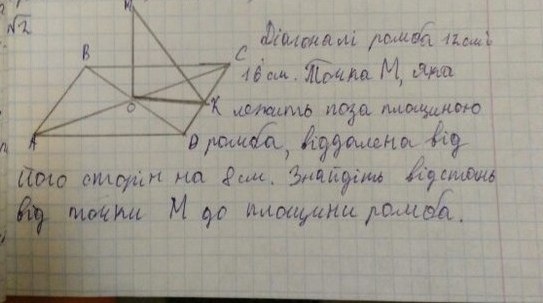 √2
M
B
C
Діагоналі ромба 12 см і
16 см. Точка M, яка
K лежить поза площиною
O
A
D ромба, віддалена від
його сторін на 8 см. Знайдіть відстань
від точки M до площини ромба.